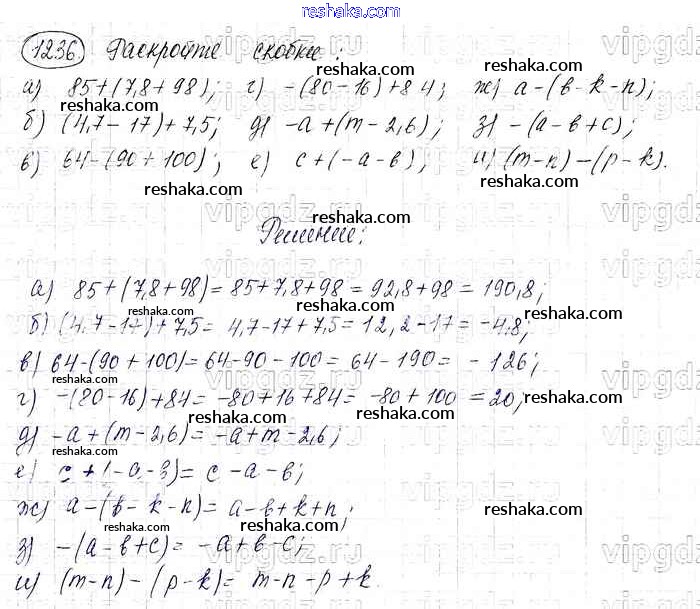 reshaka.com
1236. Раскройте скобки:
а) 85+(7,8+98); г) -(80-16)+84; ж) а-(в-k-n);
reshaka.com reshaka.com reshaka.com
б) (4,7-17)+7,5; д) -а+(m-2,6); з) -(а-в+с);
в) 64-(90+100); е) с+(-а-в); и) (m-n)-(p-k).
reshaka.com reshaka.com
reshaka.com
Решение:
а) 85+(7,8+98)=85+7,8+98=92,8+98=190,8;
reshaka.com reshaka.com reshaka.com
б) (4,7-17)+7,5= 4,7-17+7,5=12,2-17=-4,8;
в) 64-(90+100)=64-90-100=64-190= -126;
reshaka.com reshaka.com
г) -(80-16)+84= -80+16+84= -80+100 =20;
reshaka.com reshaka.com reshaka.com
д) -а+(m-2,6)=-а+m-2,6;
reshaka.com
е) с+(-а-в)= с-а-в;
ж) а-(в-k-n)= а-в+k+n;
reshaka.com reshaka.com
reshaka.com
з) -(а-в+с)= -а+в-с;
reshaka.com reshaka.com
и) (m-n)-(p-k)= m-n-p+k.
vipgdz.ru